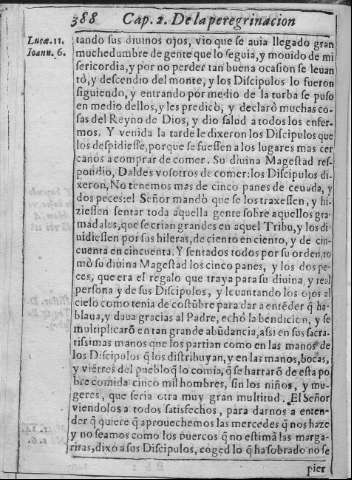 388 Cap. 2. De la peregrinacion
Luca. 11.
Ioann. 6.
tando sus diuinos ojos, vio que se auia llegado gran
muchedumbre de gente que lo seguia, y mouido de mi
sericordia, y por no perder tan buena ocasion se leuan
tó, y descendio del monte, y los Discipulos lo fueron
siguiendo, y entrando por medio de la turba se puso
en medio dellos, y les predicò, y declarò muchas co-
sas del Reyno de Dios, y dio salud a todos los enfer
mos. Y venida la tarde le dixeron los Discipulos que
los despidiesse, porque se fuessen a los lugares mas cer
canos a comprar de comer. Su diuina Magestad res-
pondio, Daldes vosotros de comer: los Discipulos di-
xeron, No tenemos mas de cinco panes de ceuada, y
dos peces: el Señor mandò que se los traxessen, y hi-
ziessen sentar toda aquella gente sobre aquellos gra-
madales, que se crian grandes en aquel Tribu, y los di
uidiessen por sus hileras, de ciento en ciento, y de cin-
cuenta en cincuenta. Y sentados todos por su orden, to
mò su diuina Magestad los cinco panes, y los dos pe-
ces, que era el regalo que traya para su diuina y real
persona y de sus Discipulos, y leuantando los ojos al
cielo como tenia de costũbre para dar a entẽder q̃ ha-
blaua, y daua gracias al Padre, echò la bendicion, y se
multiplicarõ en tan grande abũdancia, assi en sus sacra-
tissimas manos que los partian como en las manos de
los Discipulos q̃ los distribuyan, y en las manos, bocas,
y viẽtres del pueblo q̃ lo comia, q̃ se hartarõ de esta po
bre comida cinco mil hombres, sin los niños, y mu-
geres, que seria otra muy gran multitud. El Señor
viendolos a todos satisfechos, para darnos a enten-
der q̃ quiere q̃ aprouechemos las mercedes q̃ nos haze
y no seamos como los puercos q̃ no estimã las marga-
ritas, dixo a sus Discipulos, coged lo q̃ ha sobrado no se
pier